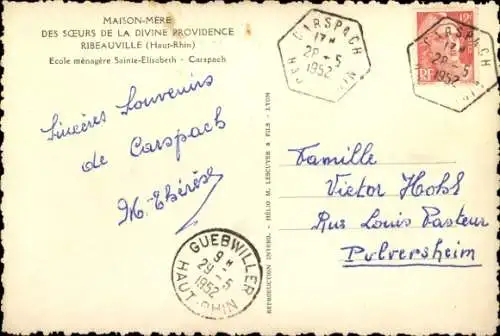 MAISON-MÈRE
DES SŒURS DE LA DIVINE PROVIDENCE
RIBEAUVILLE (Haut-Rhin)
Ecole ménagère Sainte-Elisabeth - Carspach
CARSPACH
17 H
28 - 5
1952
HAUT-RHIN
CARSPACH
17 H
28 - 5
1952
12F
RF
Sincères Souvenirs
de Carspach
M-Thérèse
GUEBWILLER
9 H
29 - 5
1952
HAUT-RHIN
REPRODUCTION INTERD. - HÉLIO M. LESCUYER & FILS - LYON
Famille
Victor
Rue Louis Pasteur
Pulversheim